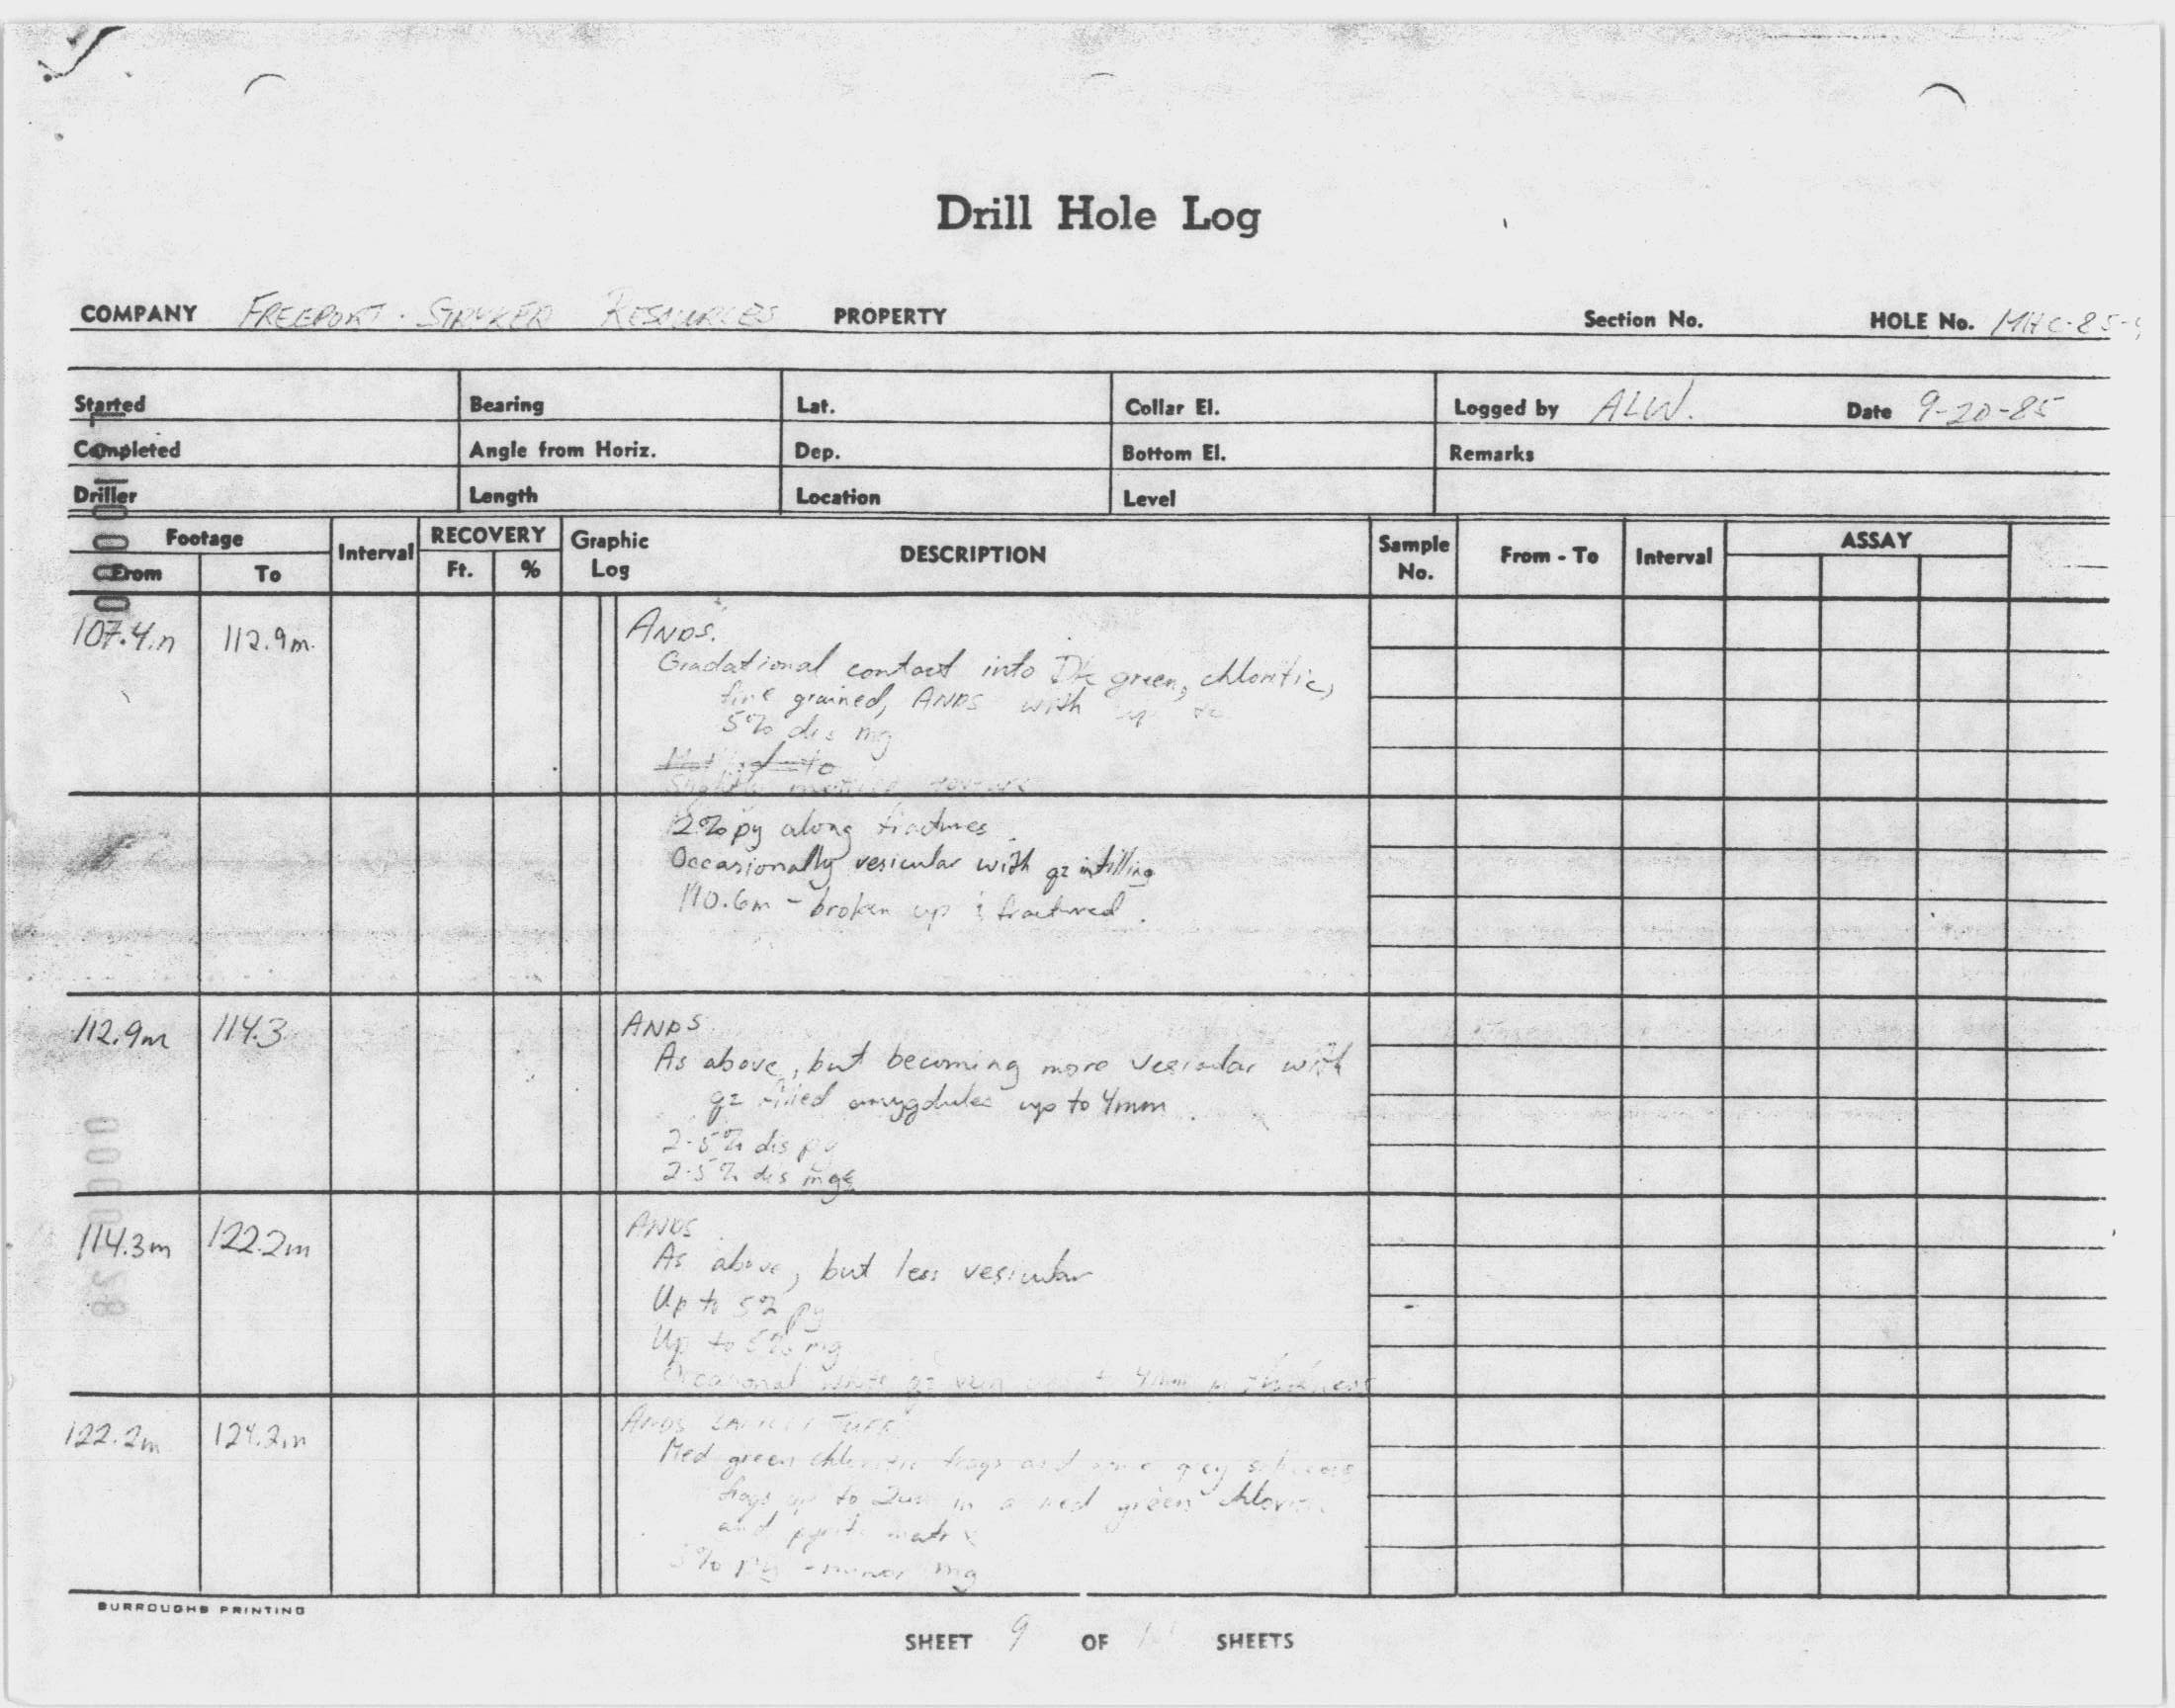 Drill Hole Log
COMPANY FREEPORT - STRYKER RESOURCES PROPERTY Section No. HOLE No. MHC-85-
Started Bearing Lat. Collar El. Logged by ALW. Date 9-20-85
Completed Angle from Horiz. Dep. Bottom El. Remarks
Driller Length Location Level
Footage Interval RECOVERY Graphic Log DESCRIPTION Sample No. From - To Interval ASSAY
From To Ft. %
107.4m 112.9m. ANDS.
Gradational contact into Dk green, chloritic,
fine grained, ANDS with up to
5% dis mg
Slightly mottled texture
2% py along fractures.
Occasionally vesicular with qz infilling
110.6m - broken up & fractured.
112.9m 114.3 ANDS
As above, but becoming more vesicular with
qz filled amygdules up to 4mm.
2-5% dis py
2-5% dis mg
114.3m 122.2m ANDS
As above, but less vesicular
Up to 5% py
Up to 5% mg
Occasional white qz vein up to 4mm in thickness
122.2m 124.2m ANDS LAPILLI TUFF
Med green chloritic frags and some grey
frags up to 2cm in a med green
and pyrite matrix
5% py - minor mg
BURROUGHS PRINTING
SHEET 9 OF SHEETS